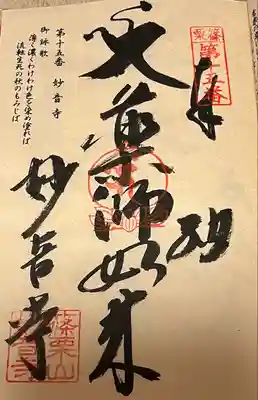 篠栗
第十五番
奉納
薬師如来
妙音寺
篠栗山
第十五番 妙音寺
御詠歌
薄く濃くわけわけ色を染め塗れば
流転生死の秋のもみじば